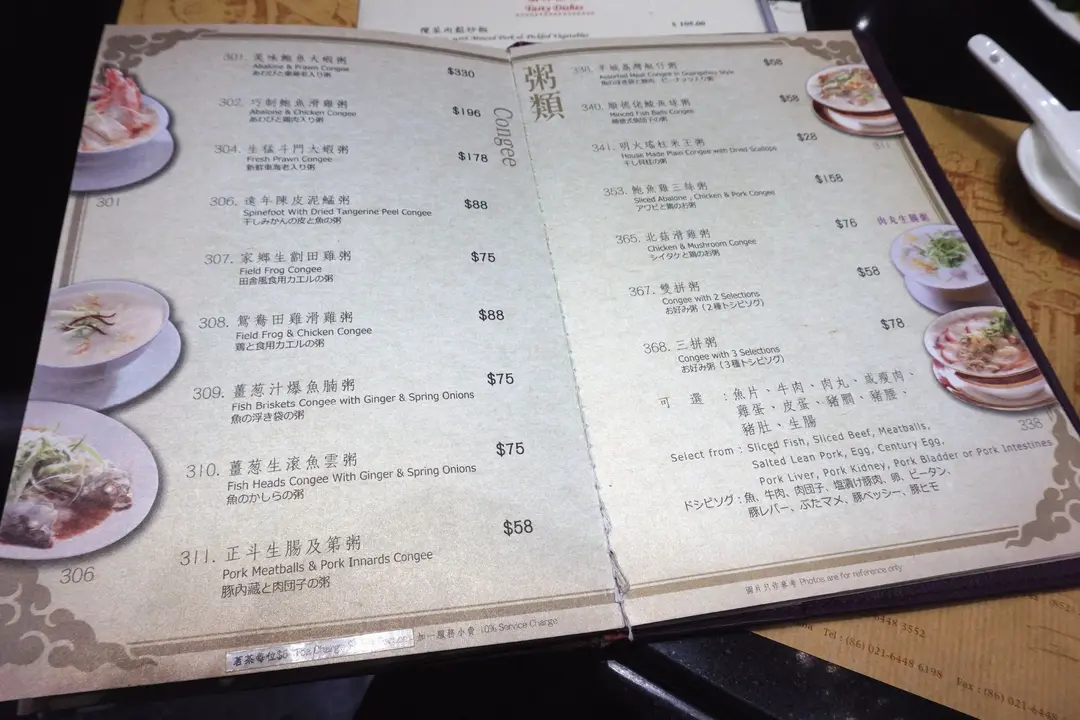 Tasty Dishes
欖菜肉鬆炒飯
with Minced Pork & Pickled Vegetables
$ 109.00
301. 美味鮑魚大蝦粥
Abalone & Prawn Congee
$330
302. 巧制鮑魚滑雞粥
Abalone & Chicken Congee
あわびと鶏肉入り粥
$196
304. 生猛斗門大蝦粥
Fresh Prawn Congee
新鮮東海老入り粥
$178
306. 遠年陳皮泥鯭粥
Spinefoot With Dried Tangerine Peel Congee
干しみかんの皮と魚の粥
$88
307. 家鄉生劏田雞粥
Field Frog Congee
田舎風食用カエルの粥
$75
308. 鴛鴦田雞滑雞粥
Field Frog & Chicken Congee
鶏と食用カエルの粥
$88
309. 薑葱汁爆魚腩粥
Fish Briskets Congee with Ginger & Spring Onions
魚の浮き袋の粥
$75
310. 薑葱生滾魚雲粥
Fish Heads Congee With Ginger & Spring Onions
魚のかしらの粥
$75
311. 正斗生腸及第粥
Pork Meatballs & Pork Innards Congee
豚内臓と肉団子の粥
$58
301
306
茗茶每位$6
加一服務小費 10% Service Charge
粥類
Congee
338. 羊城荔灣艇仔粥
Assorted Meat Congee in Guangzhou Style
$68
340. 順德佬鯪魚球粥
Minced Fish Balls Congee
順徳式魚団子の粥
$58
341. 明火瑤柱米王粥
House Made Plain Congee with Dried Scallops
干し貝柱の粥
$28
353. 鮑魚雞三絲粥
Sliced Abalone, Chicken & Pork Congee
アワビと鶏のお粥
$158
365. 北菇滑雞粥
Chicken & Mushroom Congee
シイタケと鶏のお粥
$76
肉丸生腸粥
367. 雙拼粥
Congee with 2 Selections
お好み粥（2種トシピソグ）
$58
368. 三拼粥
Congee with 3 Selections
お好み粥（3種トシピソグ）
$78
可 選 ：魚片、牛肉、肉丸、咸瘦肉、
雞蛋、皮蛋、豬膶、豬腰、
豬肚、生腸
Select from : Sliced Fish, Sliced Beef, Meatballs,
Salted Lean Pork, Egg, Century Egg,
Pork Liver, Pork Kidney, Pork Bladder or Pork Intestines
ドシピソグ：魚、牛肉、肉団子、塩漬け豚肉、卵、ピータン、
豚レバー、ぶたマメ、豚ベッシー、豚ヒモ
311
338
圖片只作參考 Photos are for reference only
6448 3552
Tel : (86) 021-6448 6198
Fax : (86) 021-644